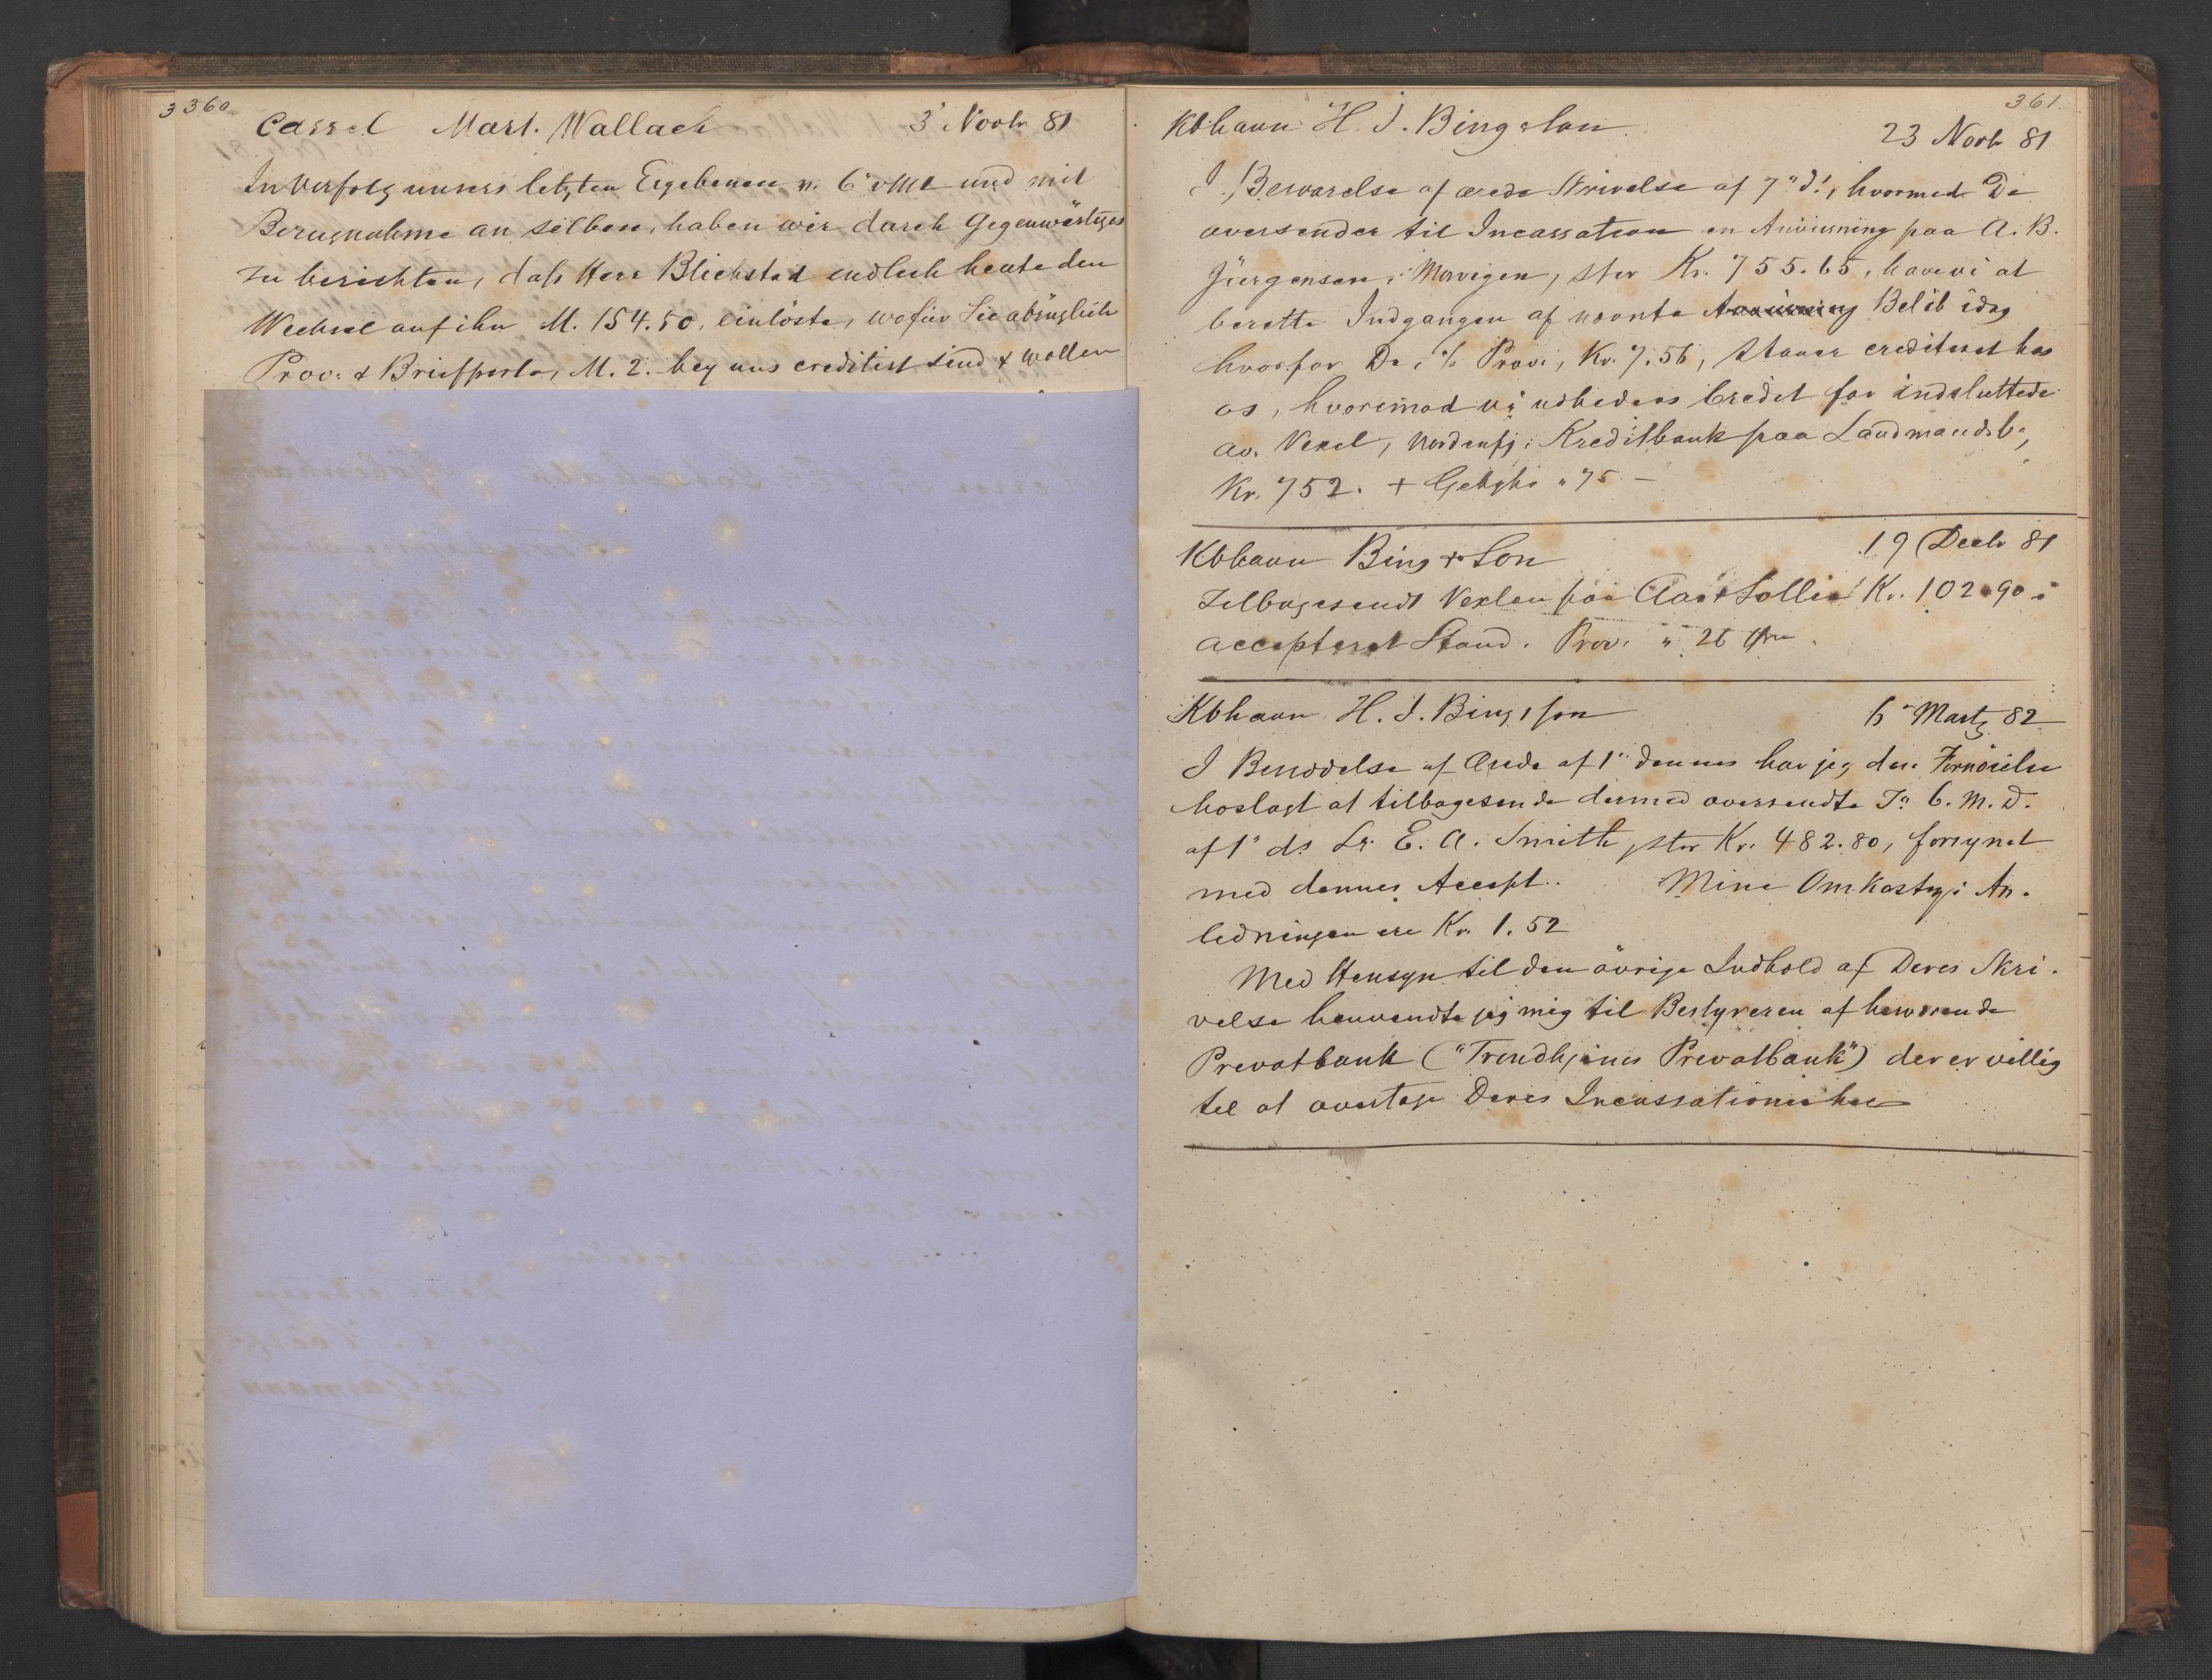 360
Cassel Mart. Wallach 3' Novbr 81
In Verfolg unsers letzten Ergebenen v. 6' und mit
Bezugnahme an selben, haben wir durch Gegenwärtiges
zu berichten, dass Herr Blichstad endlich heute den
Wechsel auf ihn M. 154.50, einlöste, wofür Sie abzüglich
Prov: & Briefporto, M. 2. bey uns creditirt sind & wollen
361.
Kbhavn H. J. Bing & Son 23 Novbr 81
I Besvarelse af ærede Skrivelse af 7" ds, hvormed De
oversender til Incassation en Anvisning paa A. B.
Jürgensen i Mosvigen, stor Kr. 755.65, have vi at
berette Indgangen af nævnte Anvisning Belöb idag
hvorfor De % Prov:, Kr. 7.56, staaer crediteret hos
os, hvorimod vi udbedes Credit for indsluttede
av. Vexel, Nordenfj: Kreditbank paa Landmandsb.,
Kr. 752. + " 75 -
Kbhavn Bing & Son 19 Decbr 81
Tilbagesendt Vexlen paa Aas & Sollie Kr. 102.90 i
accepteret Stand. Prov. " 26 Øre
Kbhavn H. J. Bing & Son 6" Martz 82
I Besvarelse af Ærede af 1" dennes har jeg den Fornöielse
hoslagt at tilbagesende dermed oversendte Ta 6. M. D.
af 1" ds Lr. E. A. Smith, stor Kr. 482.80, forsynet
med dennes Accept. Mine Omkostng i An-
ledningen ere Kr. 1.52
Med Hensyn til den övrige Indhold af Deres Skri-
velse henvendte jeg mig til Bestyreren af herværende
Privatbank ("Trondhjems Privatbank") der er villig
til at overtage Deres Incassationer her